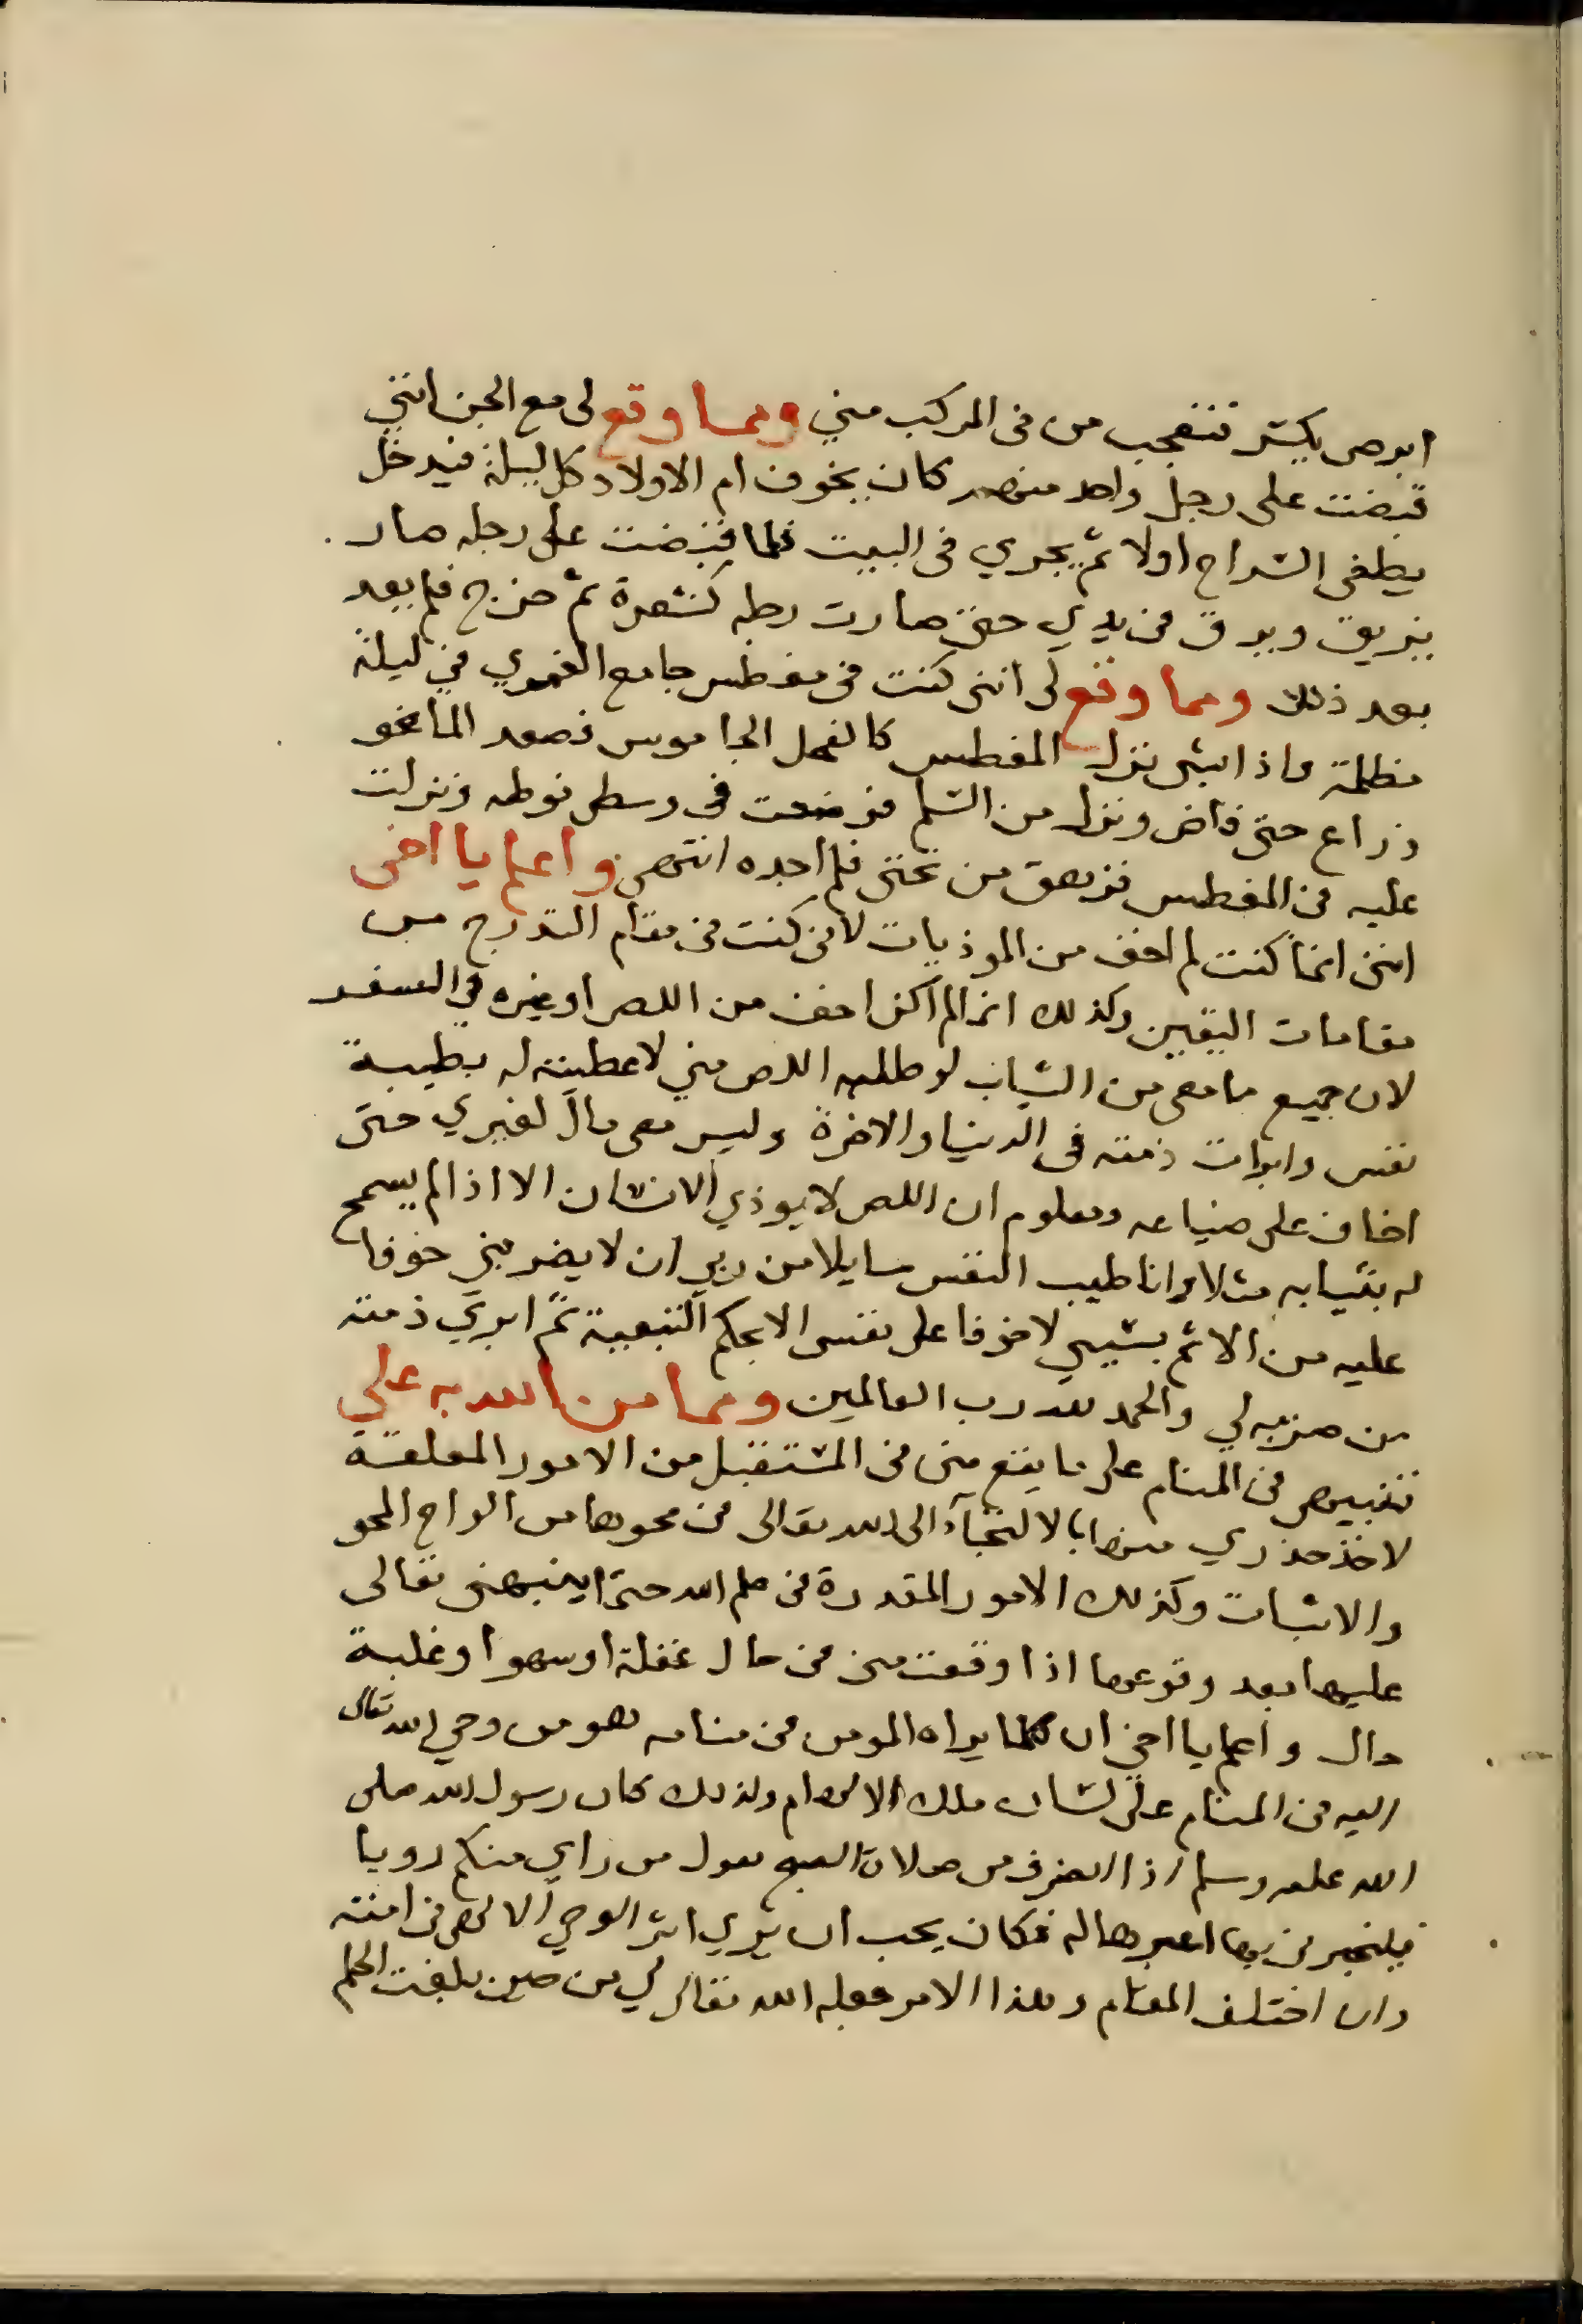 ابرص يكشر فتعجب من في المركب مني ومما وقع لي مع الجن انني
قبضت على رجل واحد منهم كان يخوف ام الاولاد كل ليلة فيدخل
يطفي السراج اولا ثم يجري في البيت فلما قبضت على رجله صار
يزيق ويرق في يدي حتى صارت رجله كشعرة ثم خرج فلم يعد
بعد ذلك ومما وقع لي انني كنت في مغطس جامع الغمري في ليلة
مظلمة فاذا بشي نزل المغطس كالفحل الجاموس فصعد الما نحو
ذراع حتى فاض ونزل من السلم فوضعت في وسطى فوطه ونزلت
عليه في المغطس فزهق من تحتي فلم اجده انتهى واعلم يا اخي
انني انما كنت لم اخف من الموذيات لاني كنت في مقام التدرج من
مقامات اليقين وكذلك انما لم اكن اخف من اللص او غيره في السفر
لان جميع ما معي من الثياب لو طلبه اللص مني لاعطيته له بطيبة
نفس وابرات ذمته في الدنيا والاخرة وليس معي مال لغيري حتى
اخاف على ضياعه ومعلوم ان اللص لا يوذي الانسان الا اذا لم يسمح
له بثيابه مثلا وانا طيب النفس سايلا من ربي ان لا يضربني خوفا
عليه من الاثم بسببي لا خوفا على نفسي الا بحكم التبعية ثم ابري ذمته
من ضربه لي والحمد لله رب العالمين ومما من الله به علي
تنبيهى في المنام على ما يقع مني في المستقبل من الامور المعلقة
لاخذ حذري منها بالالتجآء الى الله تعالى في محوها من الواح المحو
والاثبات وكذلك الامور المقدرة في علم الله حتما ينبهني تعالى
عليها بعد وقوعها اذا وقعت مني في حال غفلة او سهو او غلبة
حال واعلم يا اخي ان كلما يراه المومن في منامه فهو من وحي الله تعالى
اليه في المنام على لسان ملك الالهام ولذلك كان رسول الله صلى
الله عليه وسلم اذا انصرف من صلاة الصبح يقول من راي منكم رويا
فليخبرني بها اعبرها له فكان يحب ان يري اثر الوحي الالهي في امته
وان اختلف المقام وهذا الامر جعله الله تعالى لي من حين بلغت الحلم